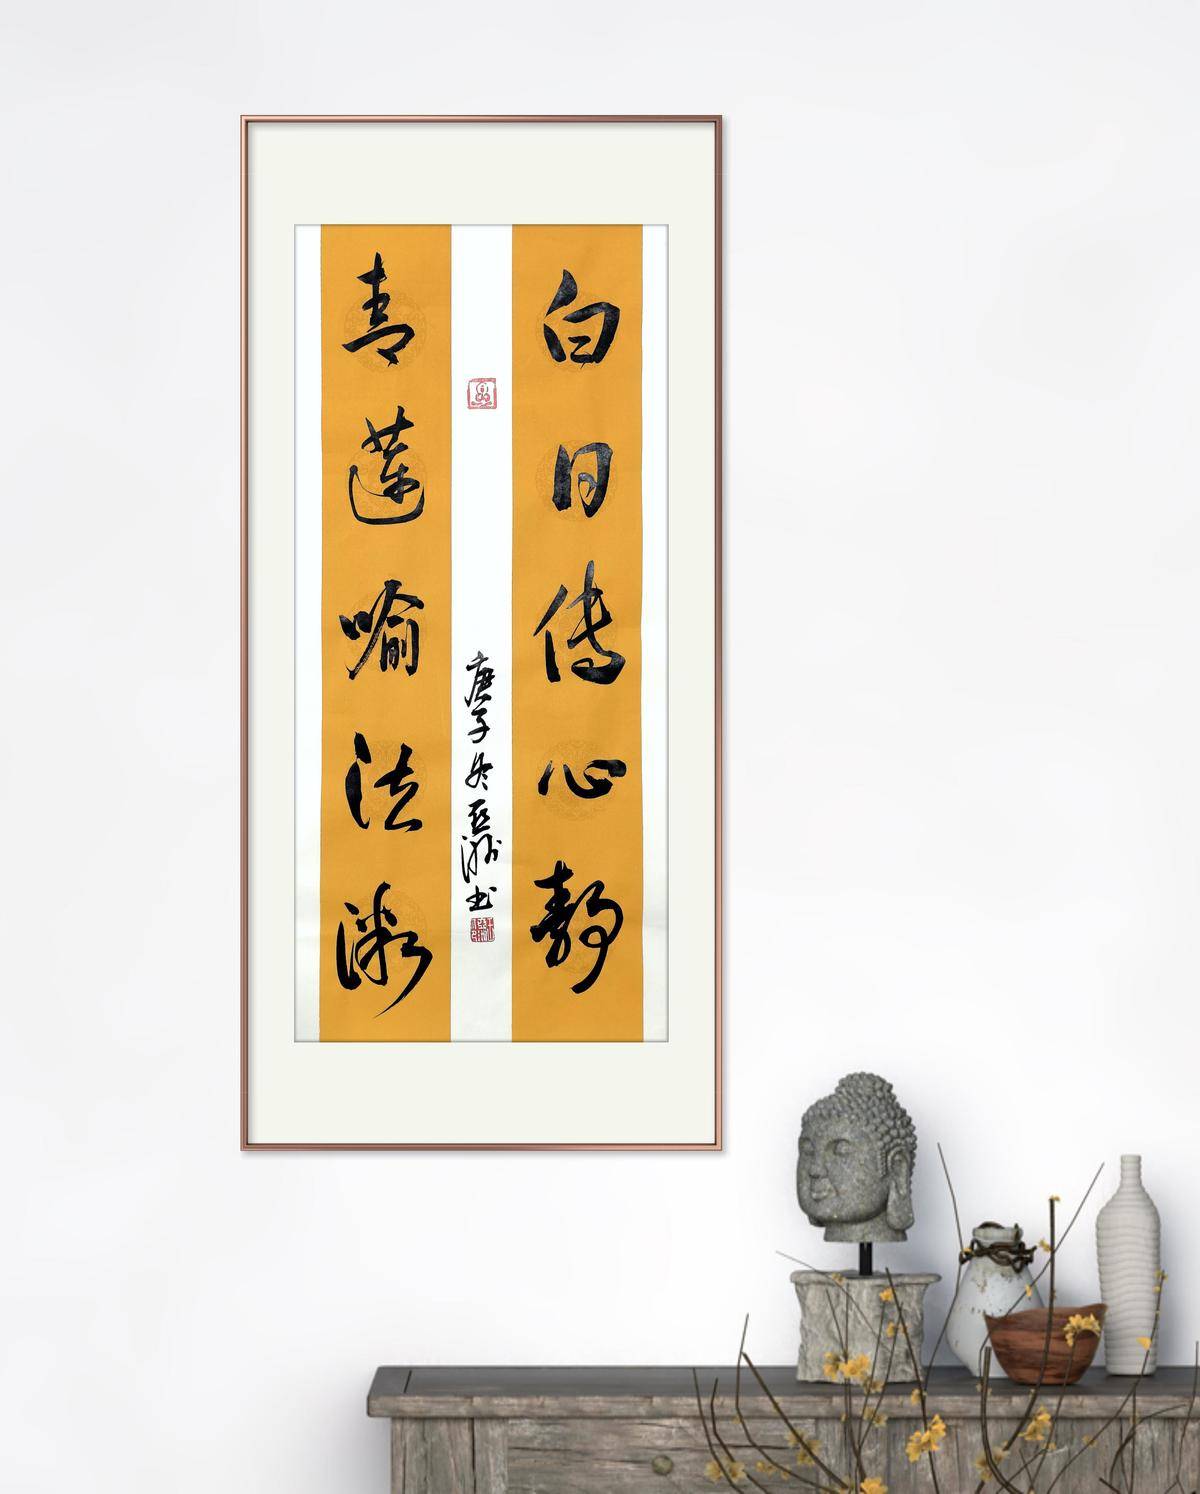 白日传心静
青莲喻法微
庚子冬亚洲书